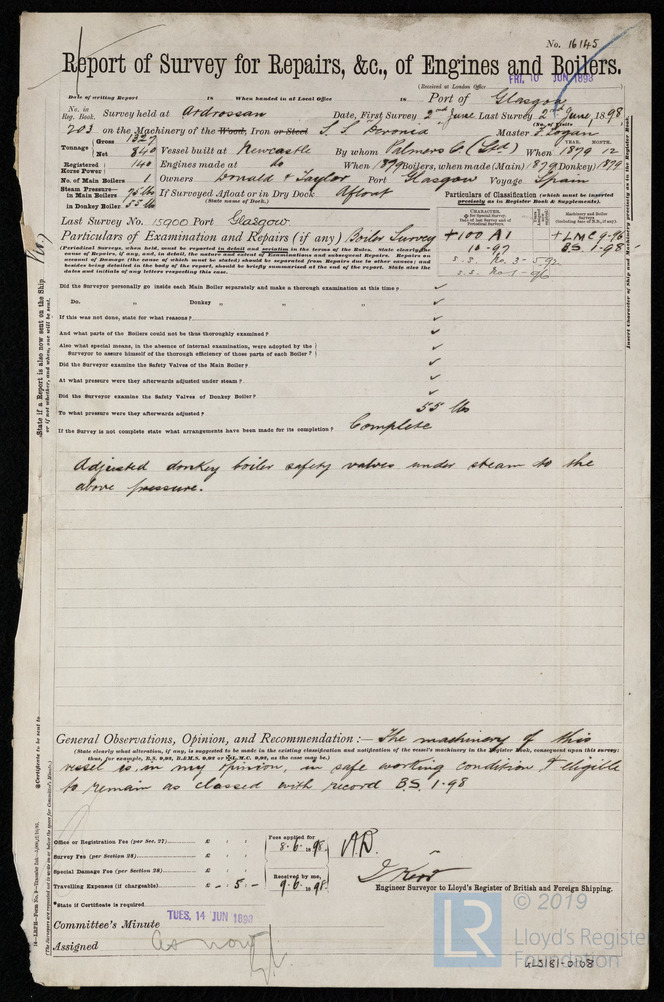 No. 16145
Report of Survey for Repairs, &c., of Engines and Boilers.
(Received at London Office FRI. 10 JUN 1898)
Date of writing Report 18 When handed in at Local Office 18 Port of Glasgow
No. in Reg. Book. Survey held at Ardrossan Date, First Survey 2nd June Last Survey 2nd June, 1898
(No. of Visits
203 on the Machinery of the Wood, Iron or Steel S.S. Devonia Master J. Logan
Tonnage Gross 1327 Net 840 Vessel built at Newcastle By whom Palmers Co (Ltd) When YEAR. 1879 MONTH. 12
Registered Horse Power 140 Engines made at do When 1879 Boilers, when made (Main) 1879 Donkey) 1879
No. of Main Boilers 1 Owners Donald & Taylor Port Glasgow Voyage Spain
Steam Pressure in Main Boilers 75 lbs If Surveyed Afloat or in Dry Dock Afloat
in Donkey Boiler 55 lbs (State name of Dock.)
Particulars of Classification (which must be inserted precisely as in Register Book & Supplements).
Last Survey No. 15900 Port Glasgow
CHARACTER. Machinery and Boiler Surveys
Particulars of Examination and Repairs (if any) Boiler Survey
+100 A1 +LMC 9-96
10-97 B.S. 1-98
s.s. No. 3-5-92
s.s. No 1-96
(Periodical Surveys, when held, must be reported in detail and seriatim in the terms of the Rules. State clearly the
cause of Repairs, if any, and, in detail, the nature and extent of Examinations and subsequent Repairs. Repairs on
account of Damage (the cause of which must be stated) should be separated from Repairs due to other causes; and
besides being detailed in the body of the report, should be briefly summarised at the end of the report. State also the
dates and initials of any letters respecting this case.)
Did the Surveyor personally go inside each Main Boiler separately and make a thorough examination at this time? ✓
Do. „ Donkey „ „ „ ✓
If this was not done, state for what reasons? ✓
And what parts of the Boilers could not be thus thoroughly examined? ✓
Also what special means, in the absence of internal examination, were adopted by the
Surveyor to assure himself of the thorough efficiency of those parts of each Boiler? ✓
Did the Surveyor examine the Safety Valves of the Main Boiler? ✓
At what pressure were they afterwards adjusted under steam? ✓
Did the Surveyor examine the Safety Valves of Donkey Boiler? ✓
To what pressure were they afterwards adjusted? 55 lbs
If the Survey is not complete state what arrangements have been made for its completion? Complete
Adjusted donkey boiler safety valves under steam to the
above pressure.
General Observations, Opinion, and Recommendation:— The machinery of this
(State clearly what alteration, if any, is suggested to be made in the existing classification and notification of the vessel's machinery in the Register Book, consequent upon this survey:
thus, for example, B.S. 9,92, B.&M.S. 9,92 or L.M.C. 9,92, as the case may be.)
vessel is, in my opinion, in safe working condition, & eligible
to remain as classed with record B.S. 1-98
Office or Registration Fee (per Sec. 27) £ : : Fees applied for 8.6.1898
Survey Fee (per Section 28) £ : :
Special Damage Fee (per Section 28) £ : : Received by me,
Travelling Expenses (if chargeable) £ - : 5 : - 9.6.1898
Engineer Surveyor to Lloyd's Register of British and Foreign Shipping.
*State if Certificate is required
Committee's Minute TUES. 14 JUN 1898
Assigned as now
State if a Report is also now sent on the Ship
or if not whether, and when, one will be sent.
Insert Character of Ship and Machinery precisely as in the Register Book.
© 2019
LR
Lloyd's Register
Foundation
GLS181-0108